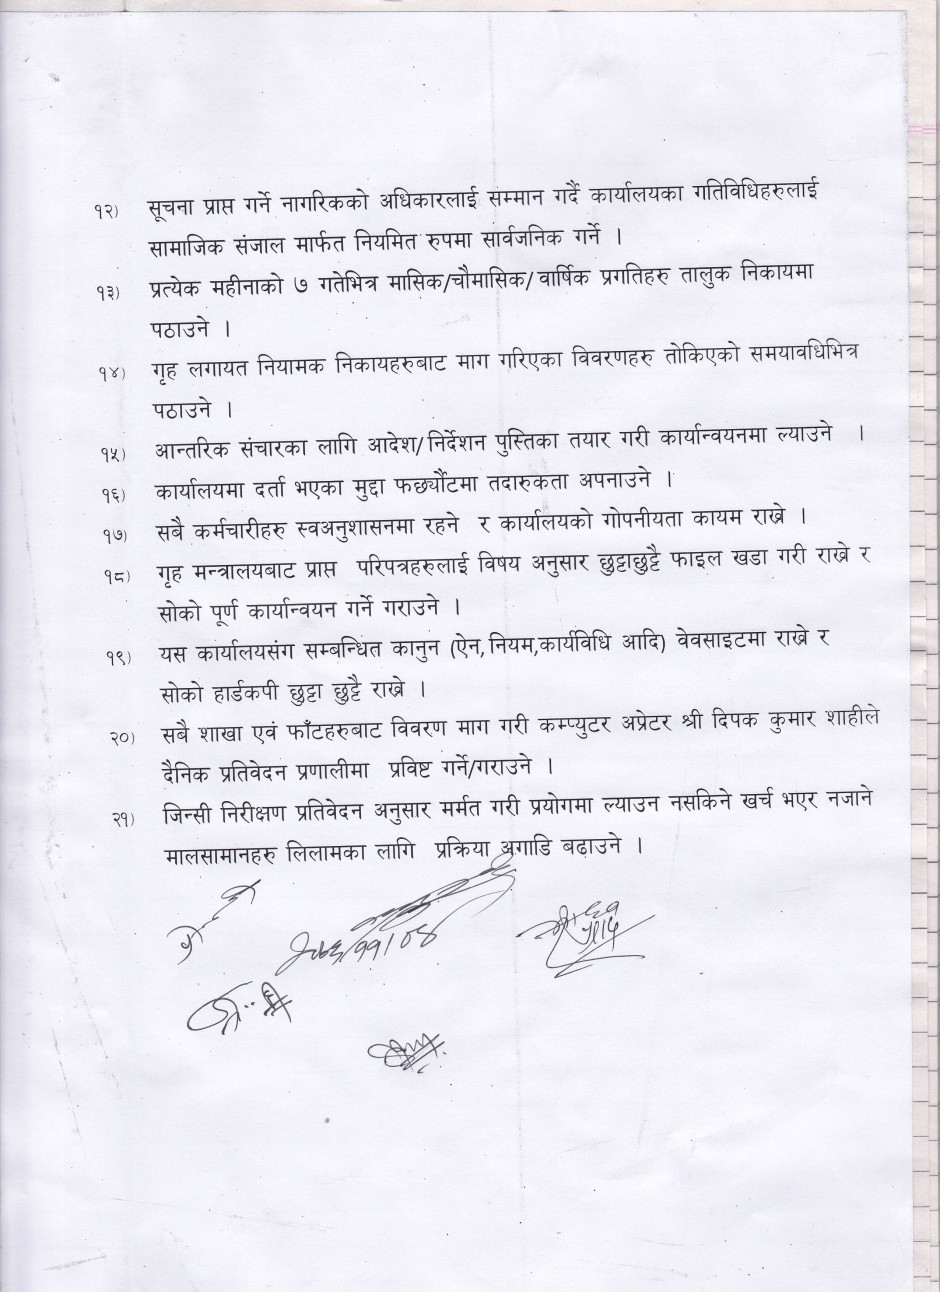 १२) सूचना प्राप्त गर्ने नागरिकको अधिकारलाई सम्मान गर्दै कार्यालयका गतिविधिहरुलाई
सामाजिक संजाल मार्फत नियमित रुपमा सार्वजनिक गर्ने ।
१३) प्रत्येक महीनाको ७ गतेभित्र मासिक/चौमासिक/वार्षिक प्रगतिहरु तालुक निकायमा
पठाउने ।
१४) गृह लगायत नियामक निकायहरुबाट माग गरिएका विवरणहरु तोकिएको समयावधिभित्र
पठाउने ।
१५) आन्तरिक संचारका लागि आदेश/निर्देशन पुस्तिका तयार गरी कार्यान्वयनमा ल्याउने ।
१६) कार्यालयमा दर्ता भएका मुद्दा फर्छ्यौटमा तदारुकता अपनाउने ।
१७) सबै कर्मचारीहरु स्वअनुशासनमा रहने र कार्यालयको गोपनीयता कायम राख्ने ।
१८) गृह मन्त्रालयबाट प्राप्त परिपत्रहरुलाई विषय अनुसार छुट्टाछुट्टै फाइल खडा गरी राख्ने र
सोको पूर्ण कार्यान्वयन गर्ने गराउने ।
१९) यस कार्यालयसंग सम्बन्धित कानुन (ऐन,नियम,कार्यविधि आदि) वेवसाइटमा राख्ने र
सोको हार्डकपी छुट्टा छुट्टै राख्ने ।
२०) सबै शाखा एवं फाँटहरुबाट विवरण माग गरी कम्प्युटर अप्रेटर श्री दिपक कुमार शाहीले
दैनिक प्रतिवेदन प्रणालीमा प्रविष्ट गर्ने/गराउने ।
२१) जिन्सी निरीक्षण प्रतिवेदन अनुसार मर्मत गरी प्रयोगमा ल्याउन नसकिने खर्च भएर नजाने
मालसामानहरु लिलामका लागि प्रक्रिया अगाडि बढाउने ।